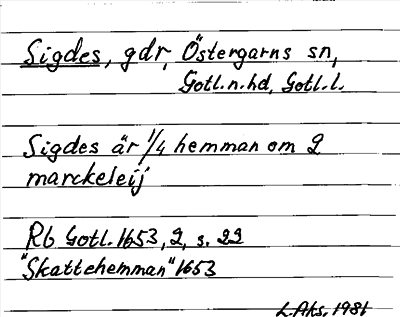 Sigdes, gdr, Östergarns sn,
Gotl.n.hd, Gotl.l.
Sigdes är 1/4 hemman om 2
marckeleij
Rb Gotl. 1653, 2, s. 22
"Skattehemman" 1653
L.Ahs, 1981